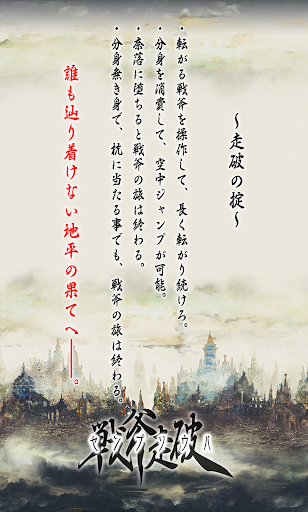 〜走破の掟〜
・転がる戦斧を操作して、長く転がり続けろ。
・分身を消費して、空中ジャンプが可能。
・奈落に堕ちると戦斧の旅は終わる。
・分身無き身で、杭に当たる事でも、戦斧の旅は終わる。
誰も辿り着けない地平の果てへ――。
戦斧走破
センプソウハ